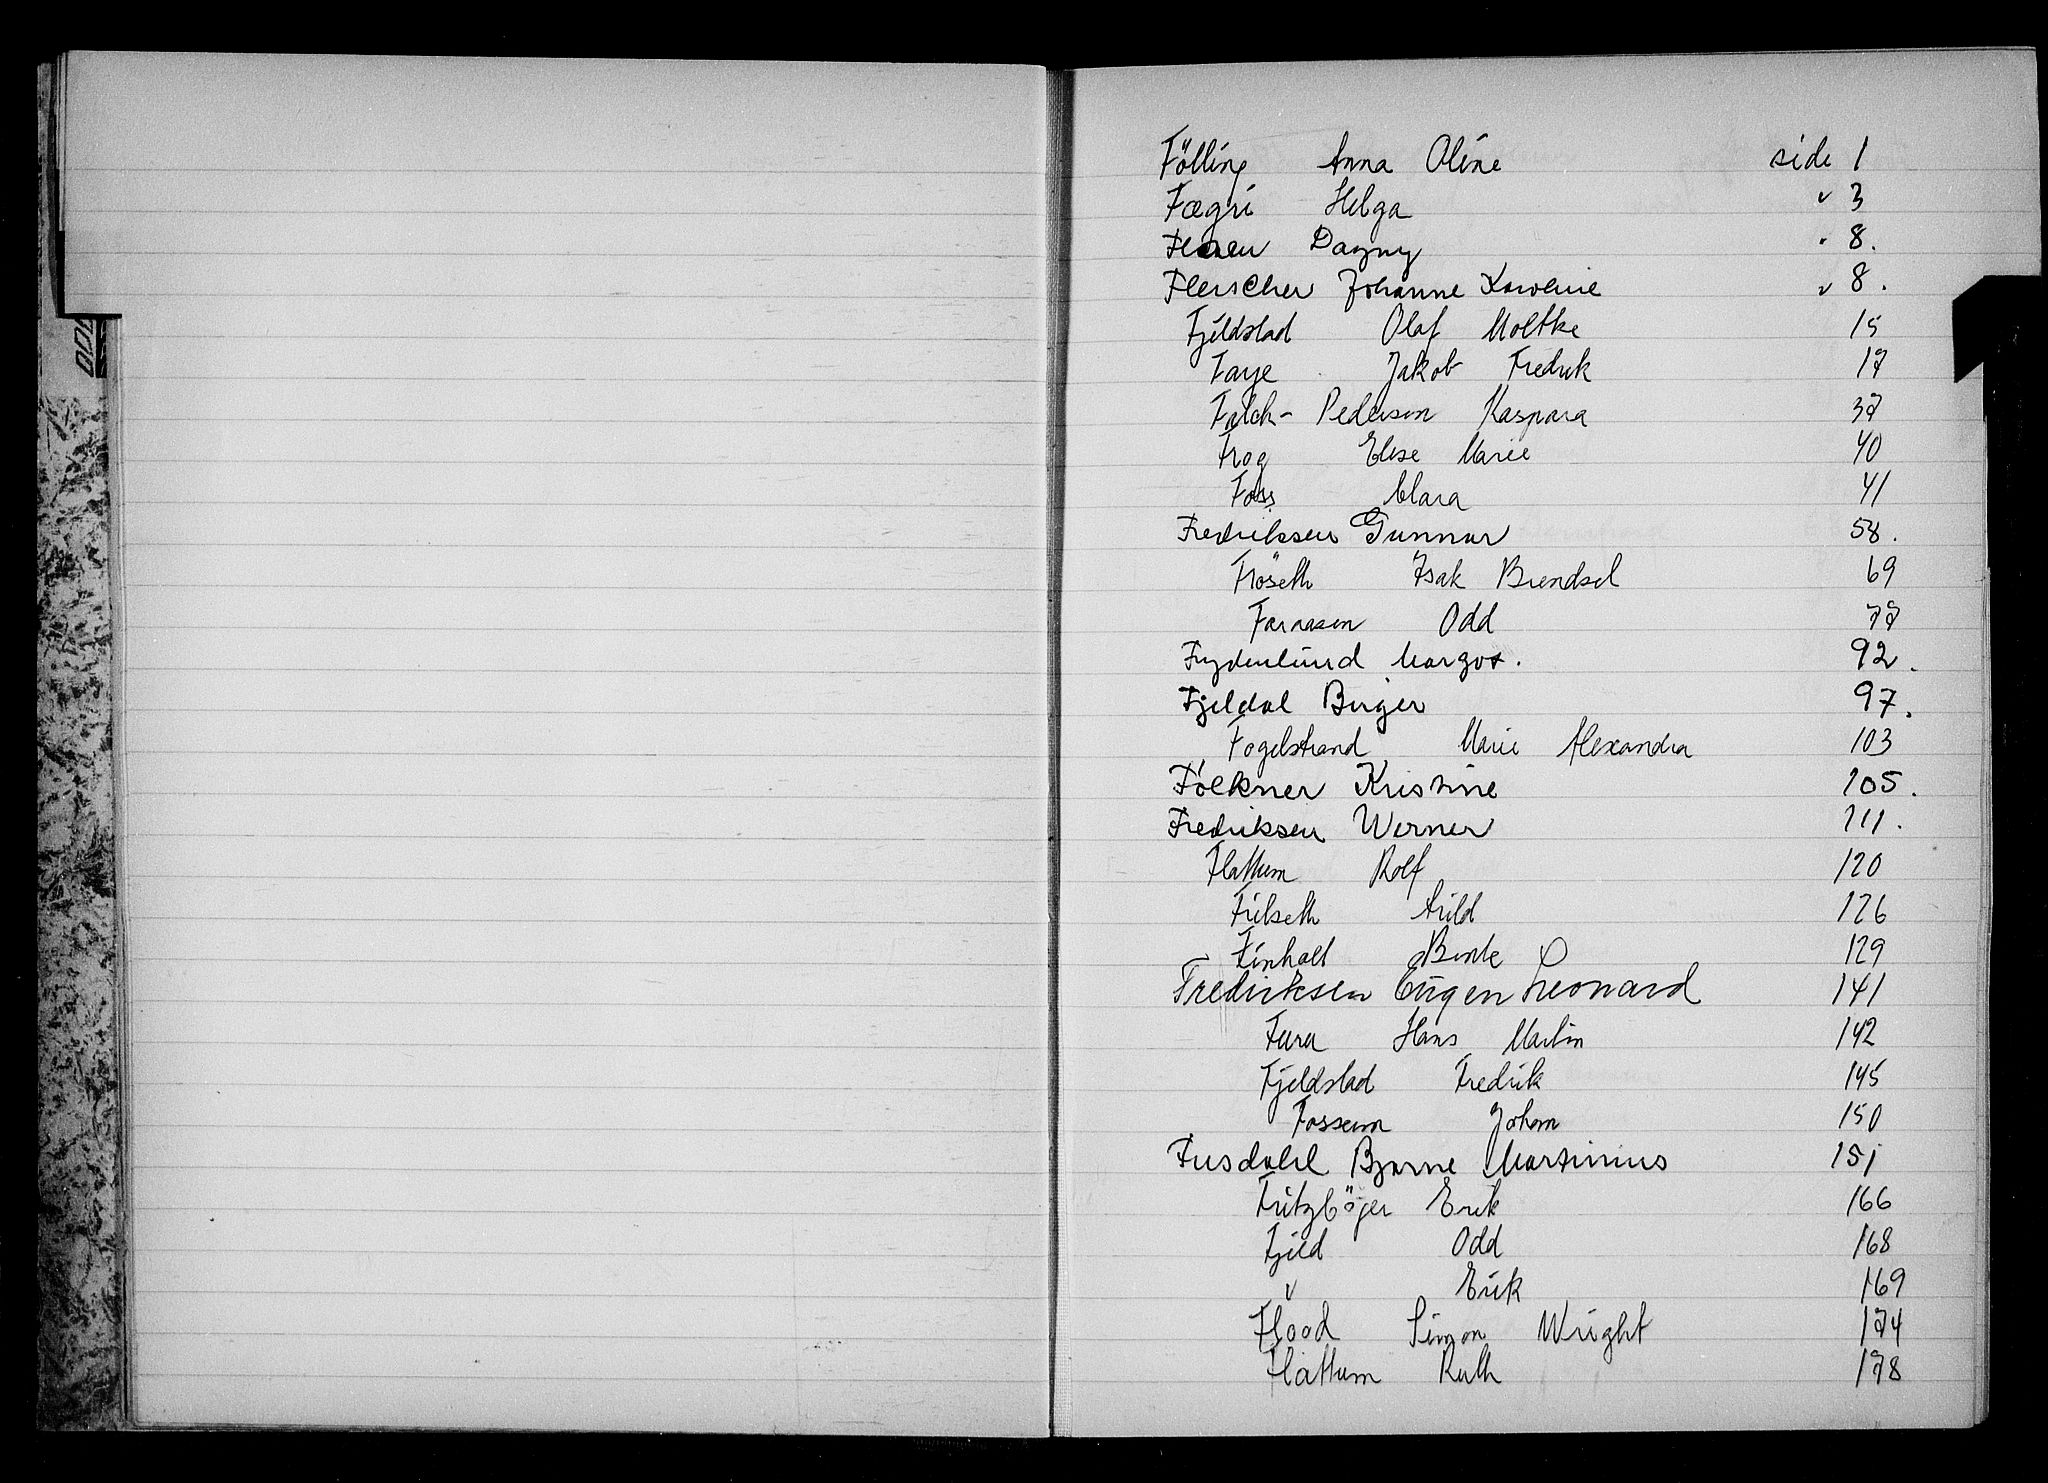 Fölling Anna Oline side 1
Fægri Helga " 3
Dagny " 8.
Fleischer Johanne Karoline " 8.
Fjeldstad Olaf Moltke 15
Faye Jakob Fredrik 17
Falck- Pedersen Kaspara 37
Frog Elise Marie 40
Foss Clara 41
Fredriksen Gunnar 58.
Fröseth Isak Brendsel 69
Farnasen Odd 77
Frydenlund Margot. 92.
Fjeldal Birger 97.
Fogelstrand Marie Alexandra 103
Földner Kristine 105.
Fredriksen Werner 111.
Flattum Rolf 120
Filseth Arild 126
Finholt Bente 129
Fredriksen Eugen Leonard 141
Hans Martin 142
Fjeldstad Fredrik 145
Fossum Johan 150
Fusdahl Bjarne Martinius 151
Fritzböger Erik 166
Fjeld Odd 168
" Erik 169
Flood Simon Wright 174
Flattum Ruth 178